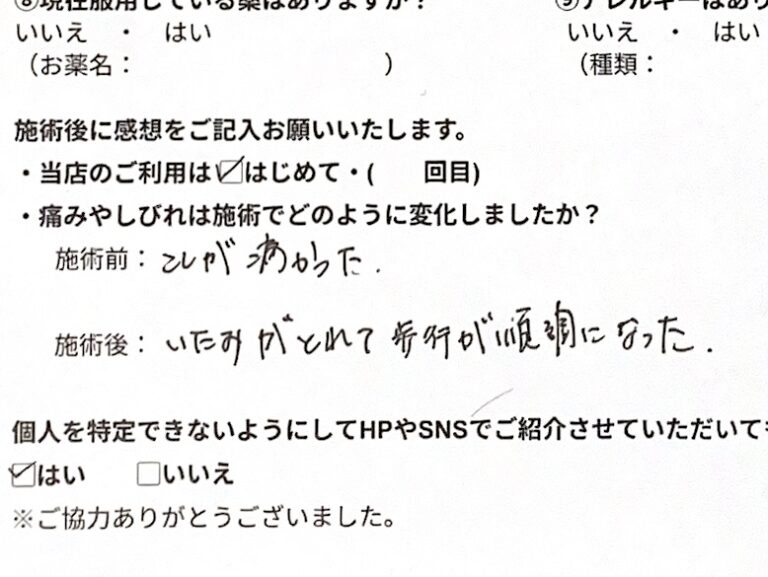 ⑧現在服用している薬はありますか？ ⑨アレルギーはあり
いいえ ・ はい いいえ ・ はい
（お薬名： ） （種類：
施術後に感想をご記入お願いいたします。
・当店のご利用は☑はじめて・( 回目)
・痛みやしびれは施術でどのように変化しましたか？
施術前：コシが痛かった.
施術後：いたみがとれて歩行が順調になった.
個人を特定できないようにしてHPやSNSでご紹介させていただいても
☑はい □いいえ
※ご協力ありがとうございました。